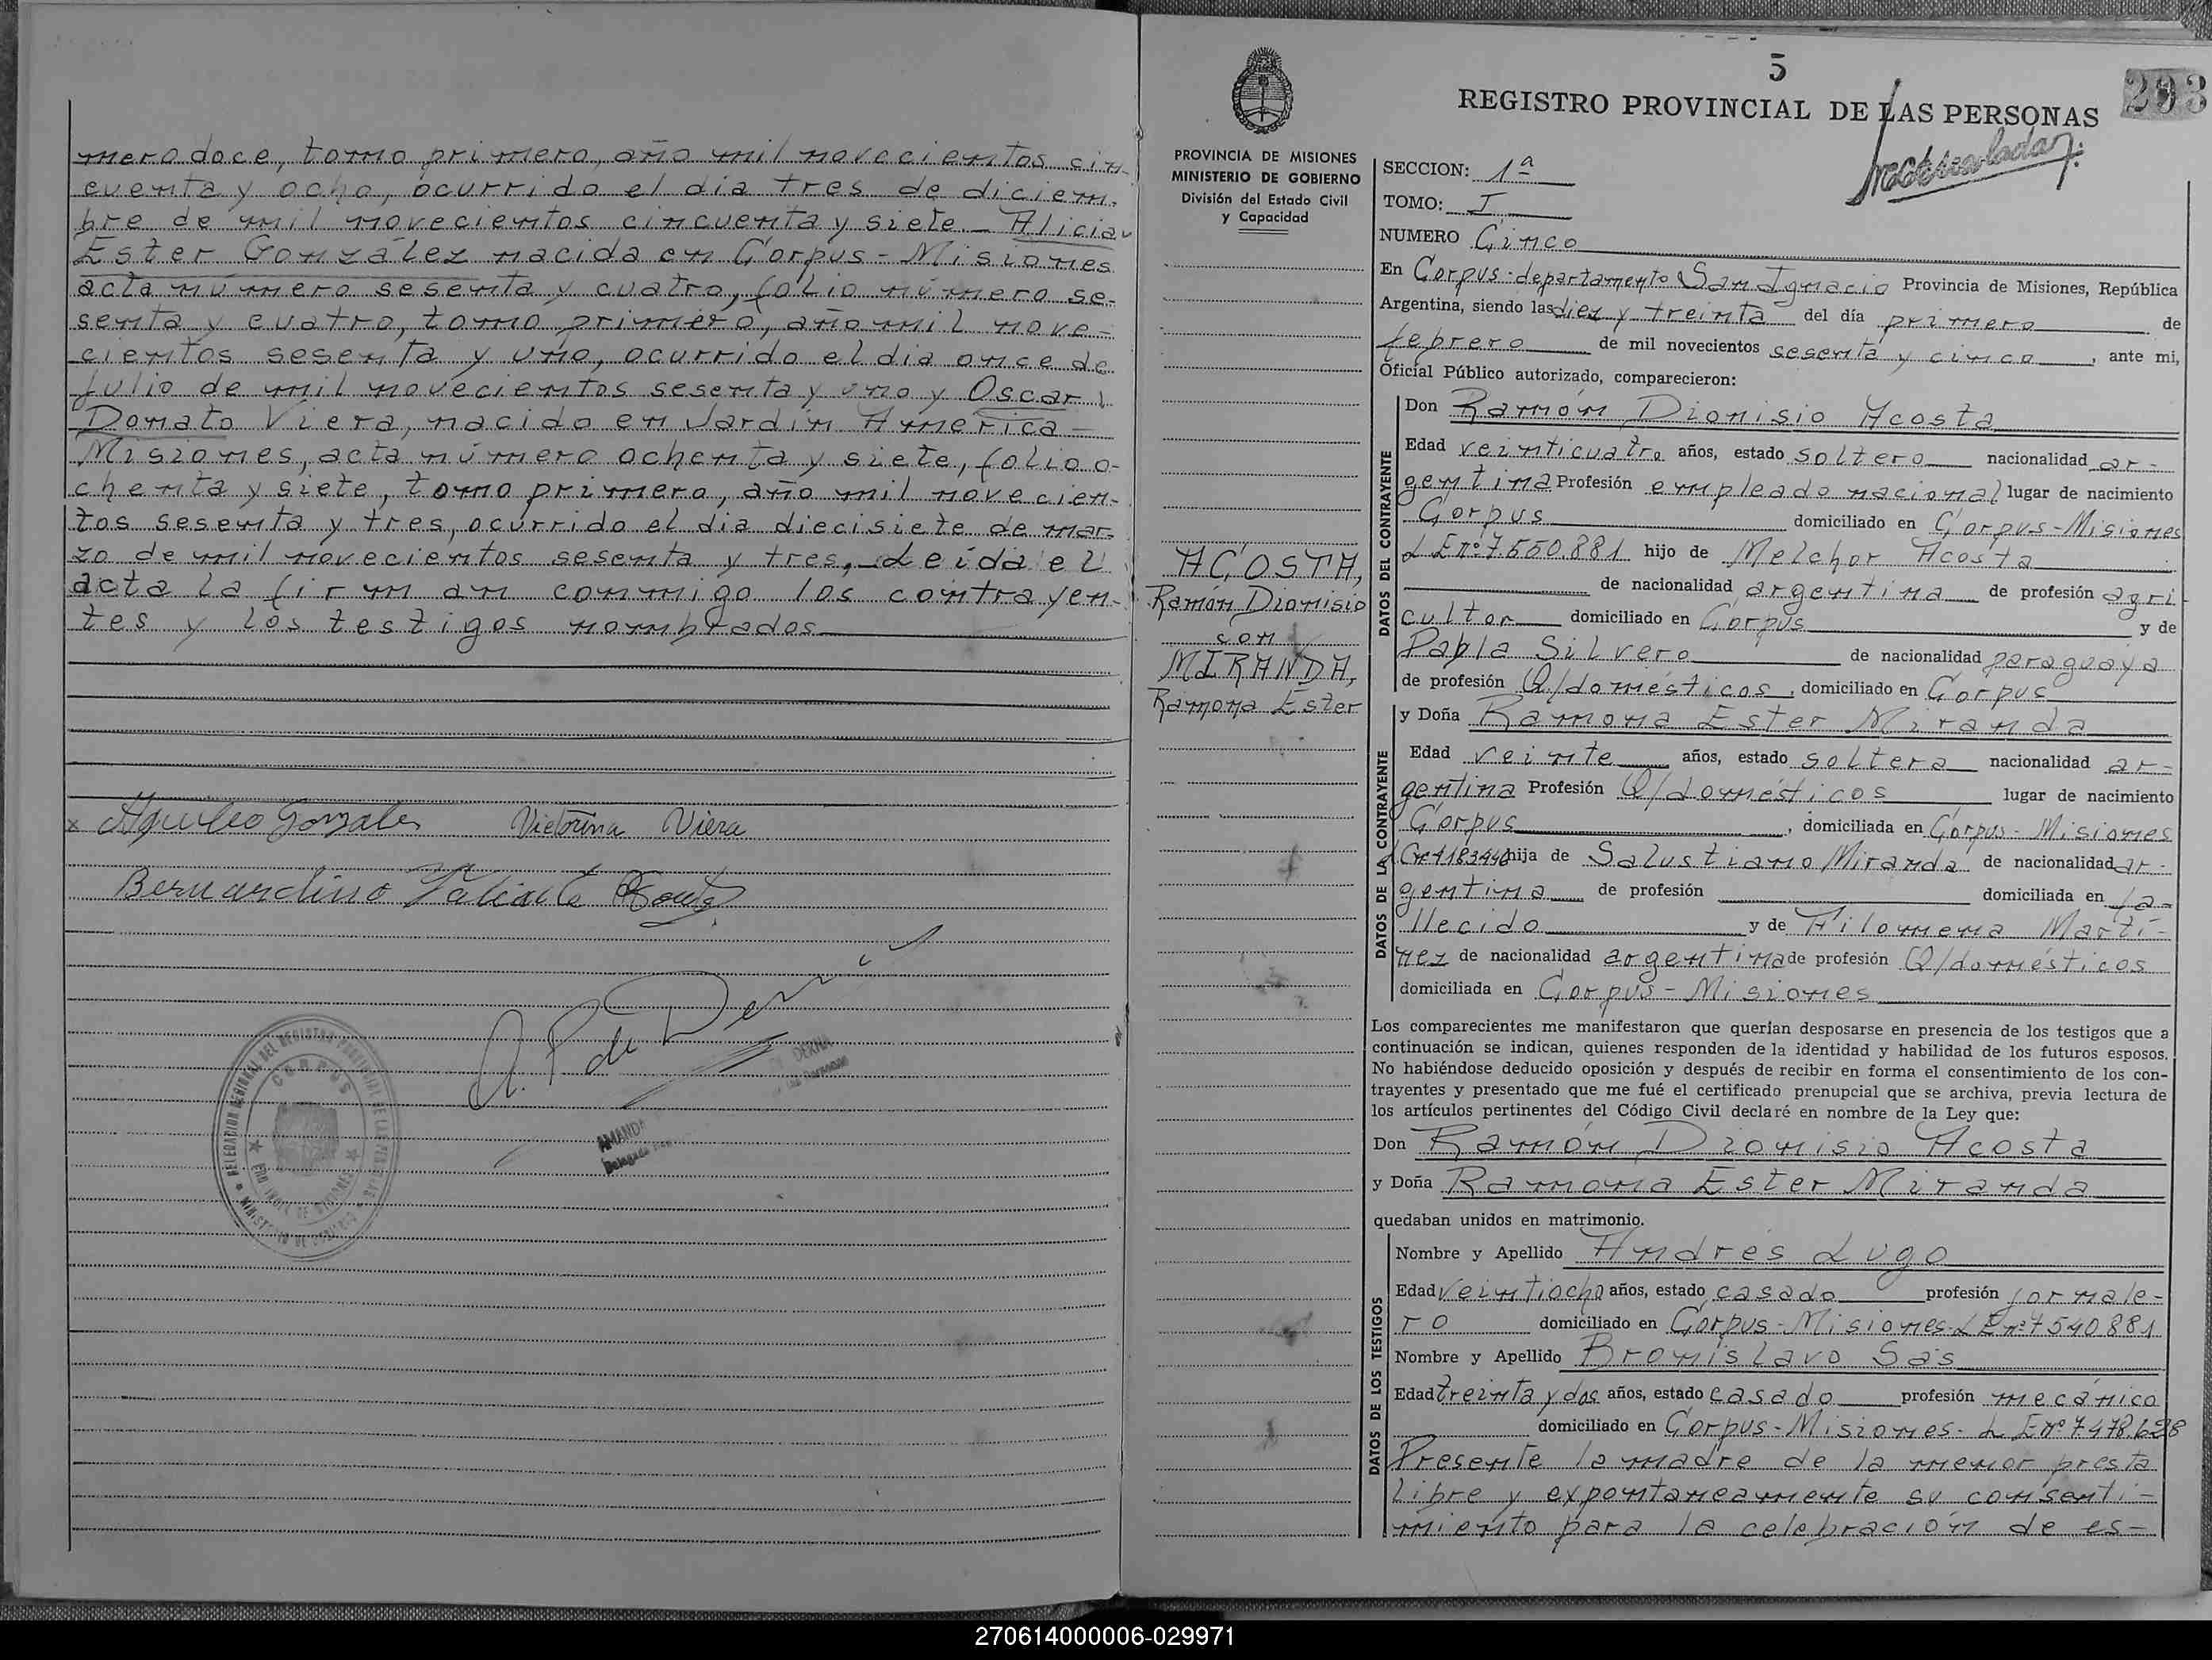 mero doce, tomo primero, año mil novecientos cin-
cuenta y ocho, ocurrido el día tres de diciem-
bre de mil novecientos cincuenta y siete.- Alicia
Ester González nacida en Corpus - Misiones
acta número sesenta y cuatro, folio número se-
senta y cuatro, tomo primero, año mil nove-
cientos sesenta y uno, ocurrido el día once de
julio de mil novecientos sesenta y uno y Oscar
Donato Viera, nacido en Jardín América -
Misiones, acta número ochenta y siete, folio o-
chenta y siete, tomo primero, año mil novecien-
tos sesenta y tres, ocurrido el día diecisiete de mar-
zo de mil novecientos sesenta y tres.- Leída el
acta la firman conmigo los contrayen-
tes y los testigos nombrados
x Aquileo Gonzales Victorina Viera
Bernardino
A. P. de Derna
DERNA
AMANDA
Delegada
DELEGACION REGIONAL DEL REGISTRO PROVINCIAL DE LAS PERSONAS
CORPUS
5
293
REGISTRO PROVINCIAL DE LAS PERSONAS
PROVINCIA DE MISIONES
MINISTERIO DE GOBIERNO
División del Estado Civil
y Capacidad
SECCION: 1ª
TOMO: I
NUMERO Cinco
En Corpus - departamento San Ignacio Provincia de Misiones, República
Argentina, siendo las diez y treinta del día primero de
febrero de mil novecientos sesenta y cinco, ante mi,
Oficial Público autorizado, comparecieron:
DATOS DEL CONTRAYENTE
Don Ramón Dionisio Acosta
Edad veinticuatro años, estado soltero nacionalidad ar-
gentina Profesión empleado nacional lugar de nacimiento
Corpus domiciliado en Corpus - Misiones
LE nº 7.550.881 hijo de Melchor Acosta
de nacionalidad argentina de profesión agri
cultor domiciliado en Corpus y de
Pabla Silvero de nacionalidad paraguaya
de profesión Q/domésticos, domiciliado en Corpus
ACOSTA,
Ramón Dionisio
con
MIRANDA,
Ramona Ester
DATOS DE LA CONTRAYENTE
y Doña Ramona Ester Miranda
Edad veinte años, estado soltera nacionalidad ar-
gentina Profesión Q/domésticos lugar de nacimiento
Corpus, domiciliada en Corpus - Misiones
hija de Salustiano Miranda de nacionalidad ar-
gentina de profesión domiciliada en fa-
llecido y de Filomena Martí-
nez de nacionalidad argentina de profesión Q/domésticos
domiciliada en Corpus - Misiones
Los comparecientes me manifestaron que querían desposarse en presencia de los testigos que a
continuación se indican, quienes responden de la identidad y habilidad de los futuros esposos.
No habiéndose deducido oposición y después de recibir en forma el consentimiento de los con-
trayentes y presentado que me fué el certificado prenupcial que se archiva, previa lectura de
los artículos pertinentes del Código Civil declaré en nombre de la Ley que:
Don Ramón Dionisio Acosta
y Doña Ramona Ester Miranda
quedaban unidos en matrimonio.
DATOS DE LOS TESTIGOS
Nombre y Apellido Andrés Lugo
Edad veintiocho años, estado casado profesión jornale-
ro domiciliado en Corpus - Misiones - LE nº 7540881
Nombre y Apellido Bronislavo Sas
Edad treinta y dos años, estado casado profesión mecánico
domiciliado en Corpus - Misiones - LE nº 7.478.628
Presente la madre de la menor presta
libre y expontaneamente su consenti-
miento para la celebración de es-
270614000006-029971